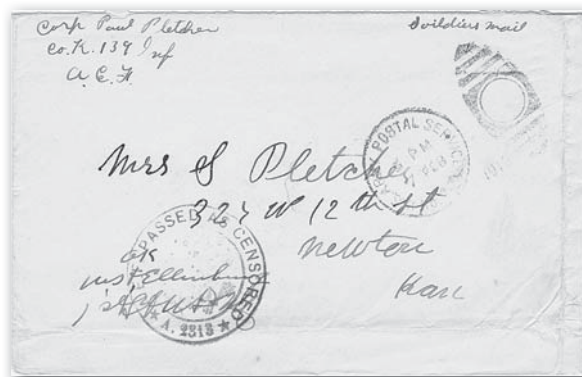 Corp Paul Pletcher
Co. K. 139 Inf
A. E. F.
Soildiers mail
ARMY POSTAL SERVICE
PM
FEB
Mrs S Pletcher
W 12 th st
Newton
Kan
PASSED AS CENSORED
OK
A. 2313